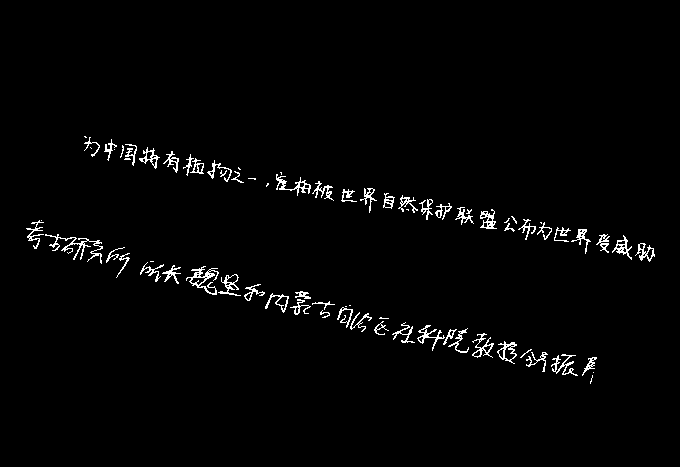 为中国特有植物之一，崖柏被世界自然保护联盟公布为世界受威胁
考古研究所所长魏坚和内蒙古自治区社科院教授舒振